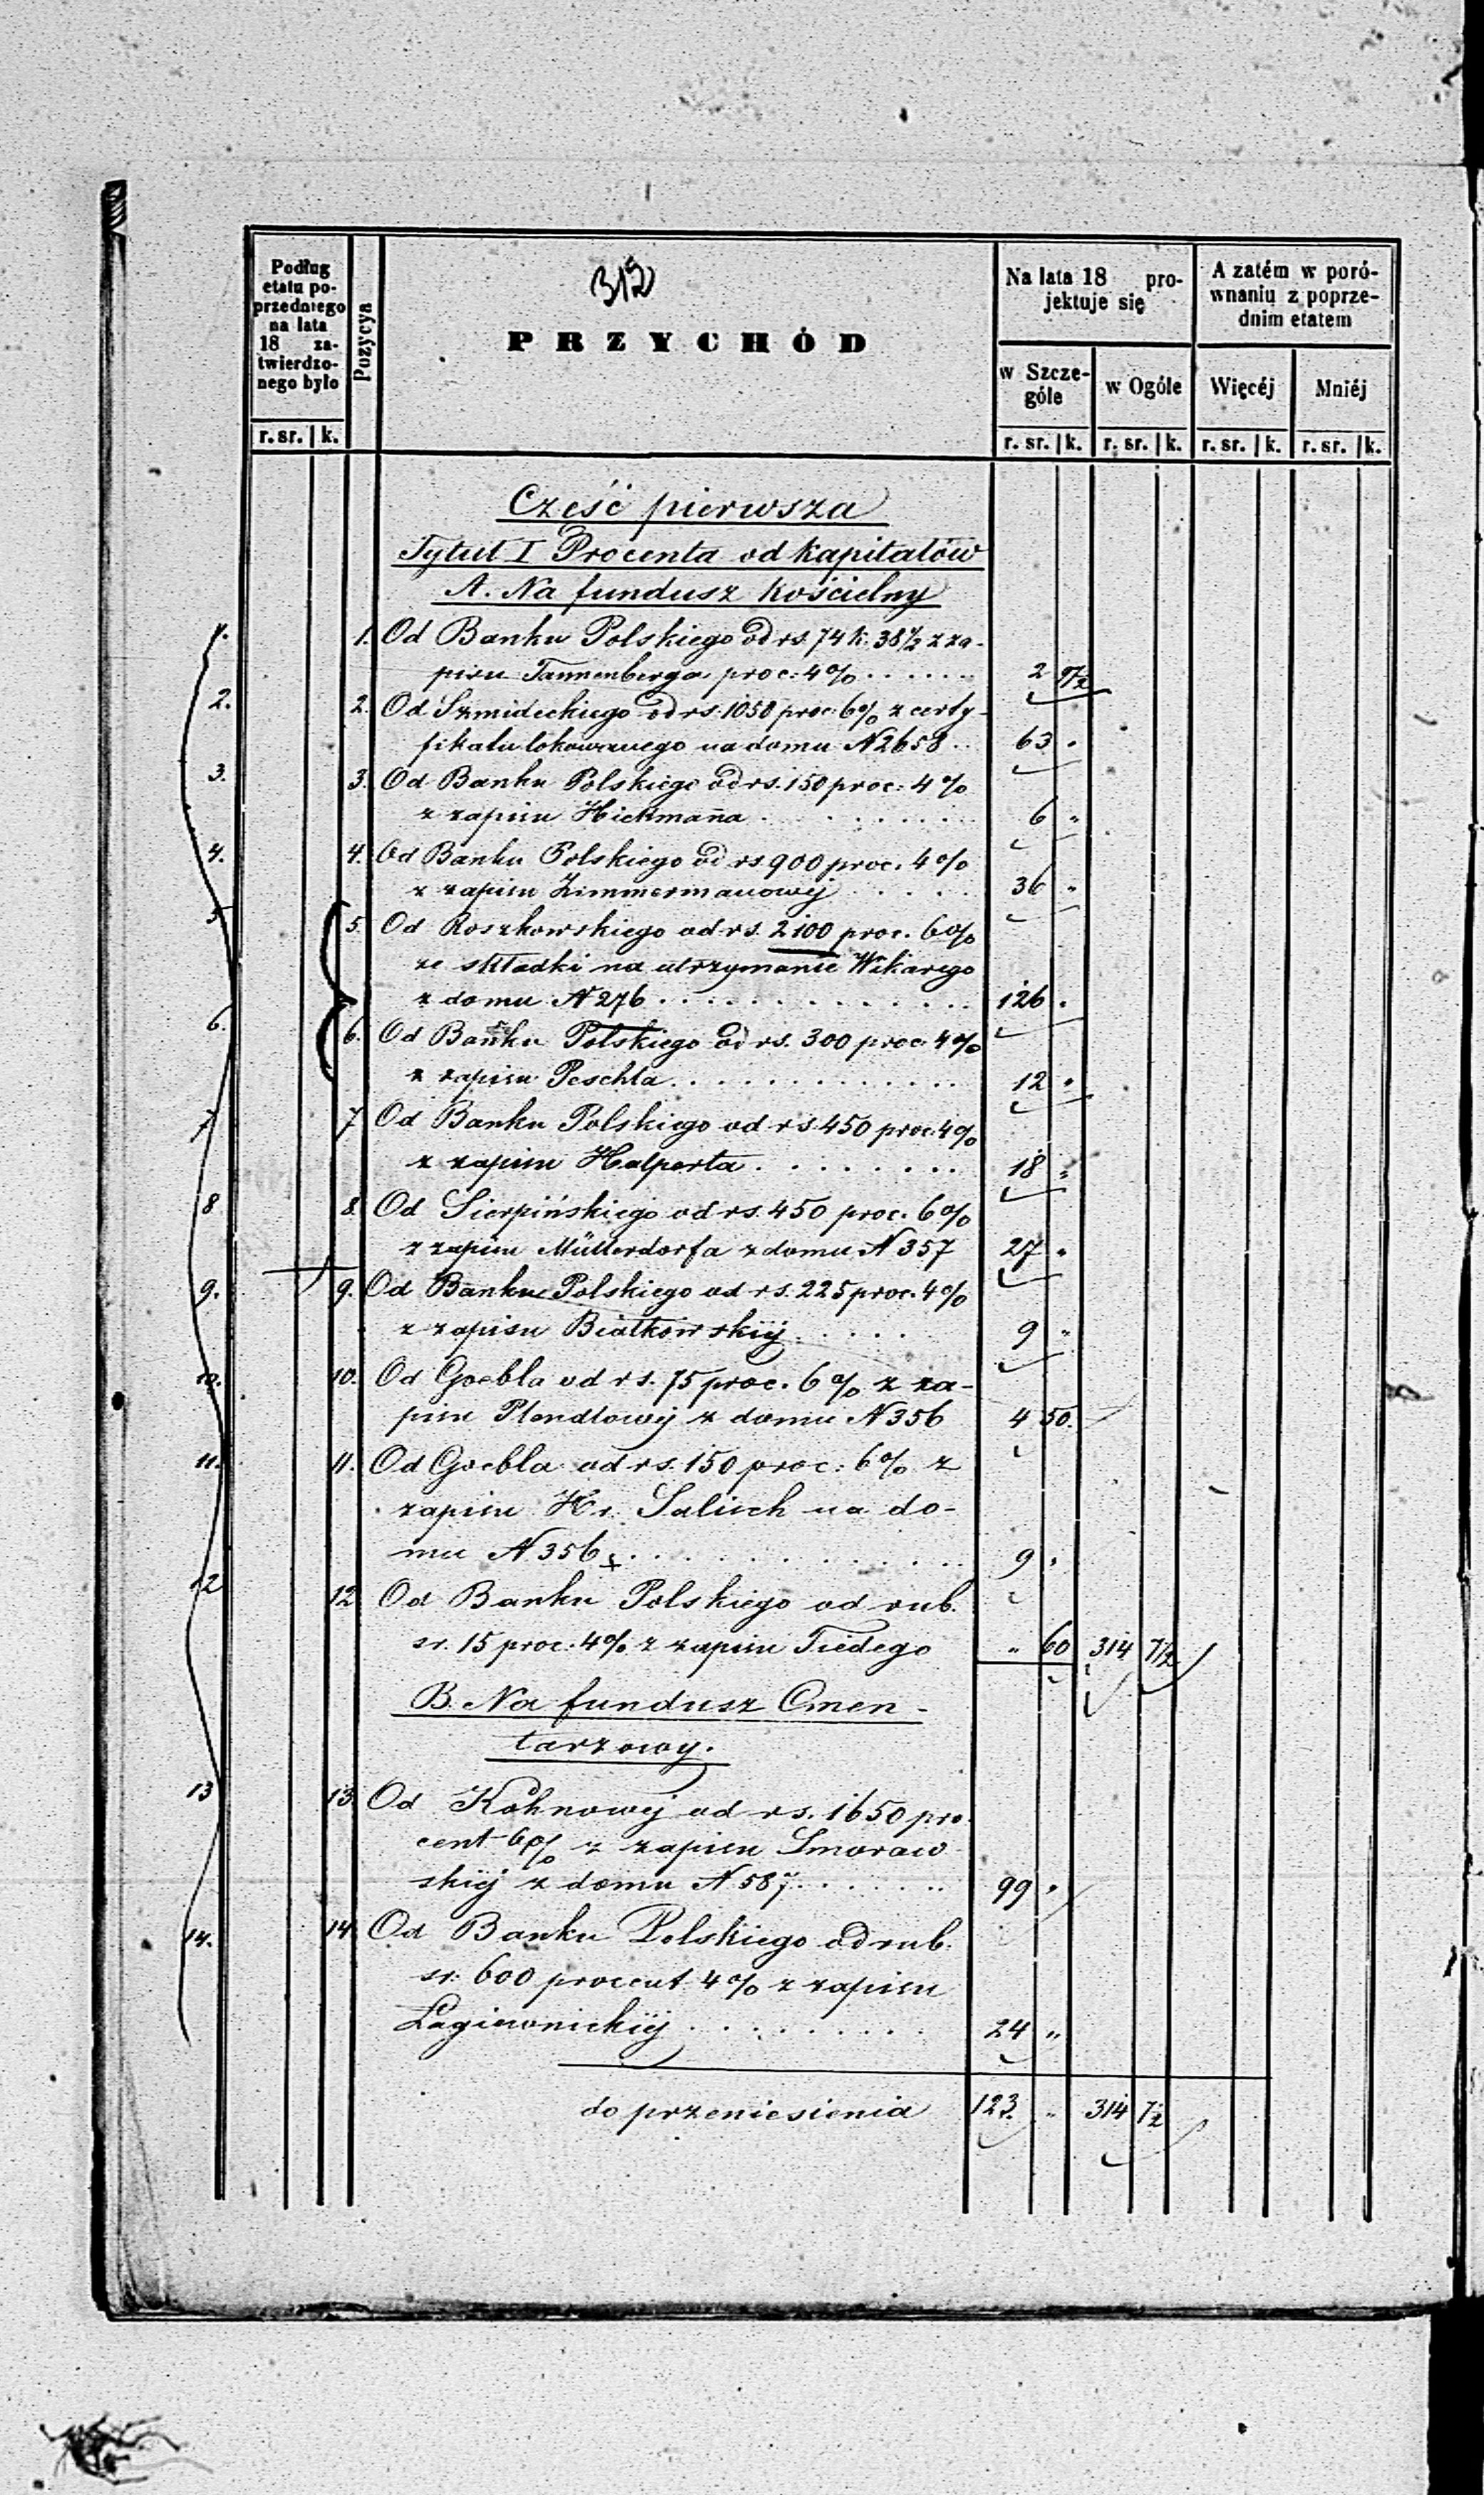 312
Podług
etatu po-
przedniego
na lata
18 za-
twierdzo-
nego było
Pozycya
PRZYCHÓD
Na lata 18 pro-
jektuje się
A zatém w poró-
wnaniu z poprze-
dnim etatem
w Szcze-
góle
w Ogóle
Więcéj
Mniéj
r. sr. k. r. sr. k. r. sr. k. r. sr. k. r. sr. k.
Cześć pierwsza
Tytuł I Procenta od kapitałów
A. Na fundusz kościelny
1. 1. Od Banku Polskiego od rs. 74 k. 38½ z za-
pisu Tannenberga proc: 4% . . . . . . 2 97½
2. 2. Od Szmideckiego od rs. 1050 proc: 6% z certy-
fikatu lokowanego na domu N 2658 . . 63 "
3. 3. Od Banku Polskiego od rs. 150 proc: 4%
z zapisu Hickmanna . . . . . . . . 6 "
4. 4. Od Banku Polskiego od rs. 900 proc. 4%
z zapisu Zimmermanowej . . . . 36 "
5 5. Od Roszkowskiego od rs. 2100 proc. 6%
ze składki na utrzymanie Wikarego
z domu N 276 . . . . . . . . . . . . 126 "
6. 6. Od Banku Polskiego od rs. 300 proc. 4%
z zapisu Peschla . . . . . . . . . . . 12 "
7 7 Od Banku Polskiego od rs. 450 proc. 4%
z zapisu Halperta . . . . . . . . 18 "
8 8. Od Sierpińskiego od rs. 450 proc. 6%
z zapisu Müllerdorfa z domu N 357 27 "
9. 9. Od Banku Polskiego od rs. 225 proc. 4%
z zapisu Białkowskiej . . . . . 9 "
10. 10. Od Goebla od rs. 75 proc. 6% z za-
pisu Plendlowej z domu N 356 4 50.
11. 11. Od Goebla od rs. 150 proc: 6% z
zapisu Hr. Salisch na do-
mu N 356 . . . . . . . . . . . . 9 "
12 12 Od Banku Polskiego od rub.
sr. 15 proc. 4% z zapisu Tiedego " 60 314 7½
B. Na fundusz Cmen-
tarzowy.
13 13 Od Kohnowej od rs. 1650 pro-
cent 6% z zapisu Smoraw-
skiej z domu N 587 . . . . . . . 99 "
14. 14. Od Banku Polskiego od rub.
sr. 600 procent 4% z zapisu
Łagiewnickiej . . . . . . . . . 24 "
do przeniesienia 123. " 314 7½